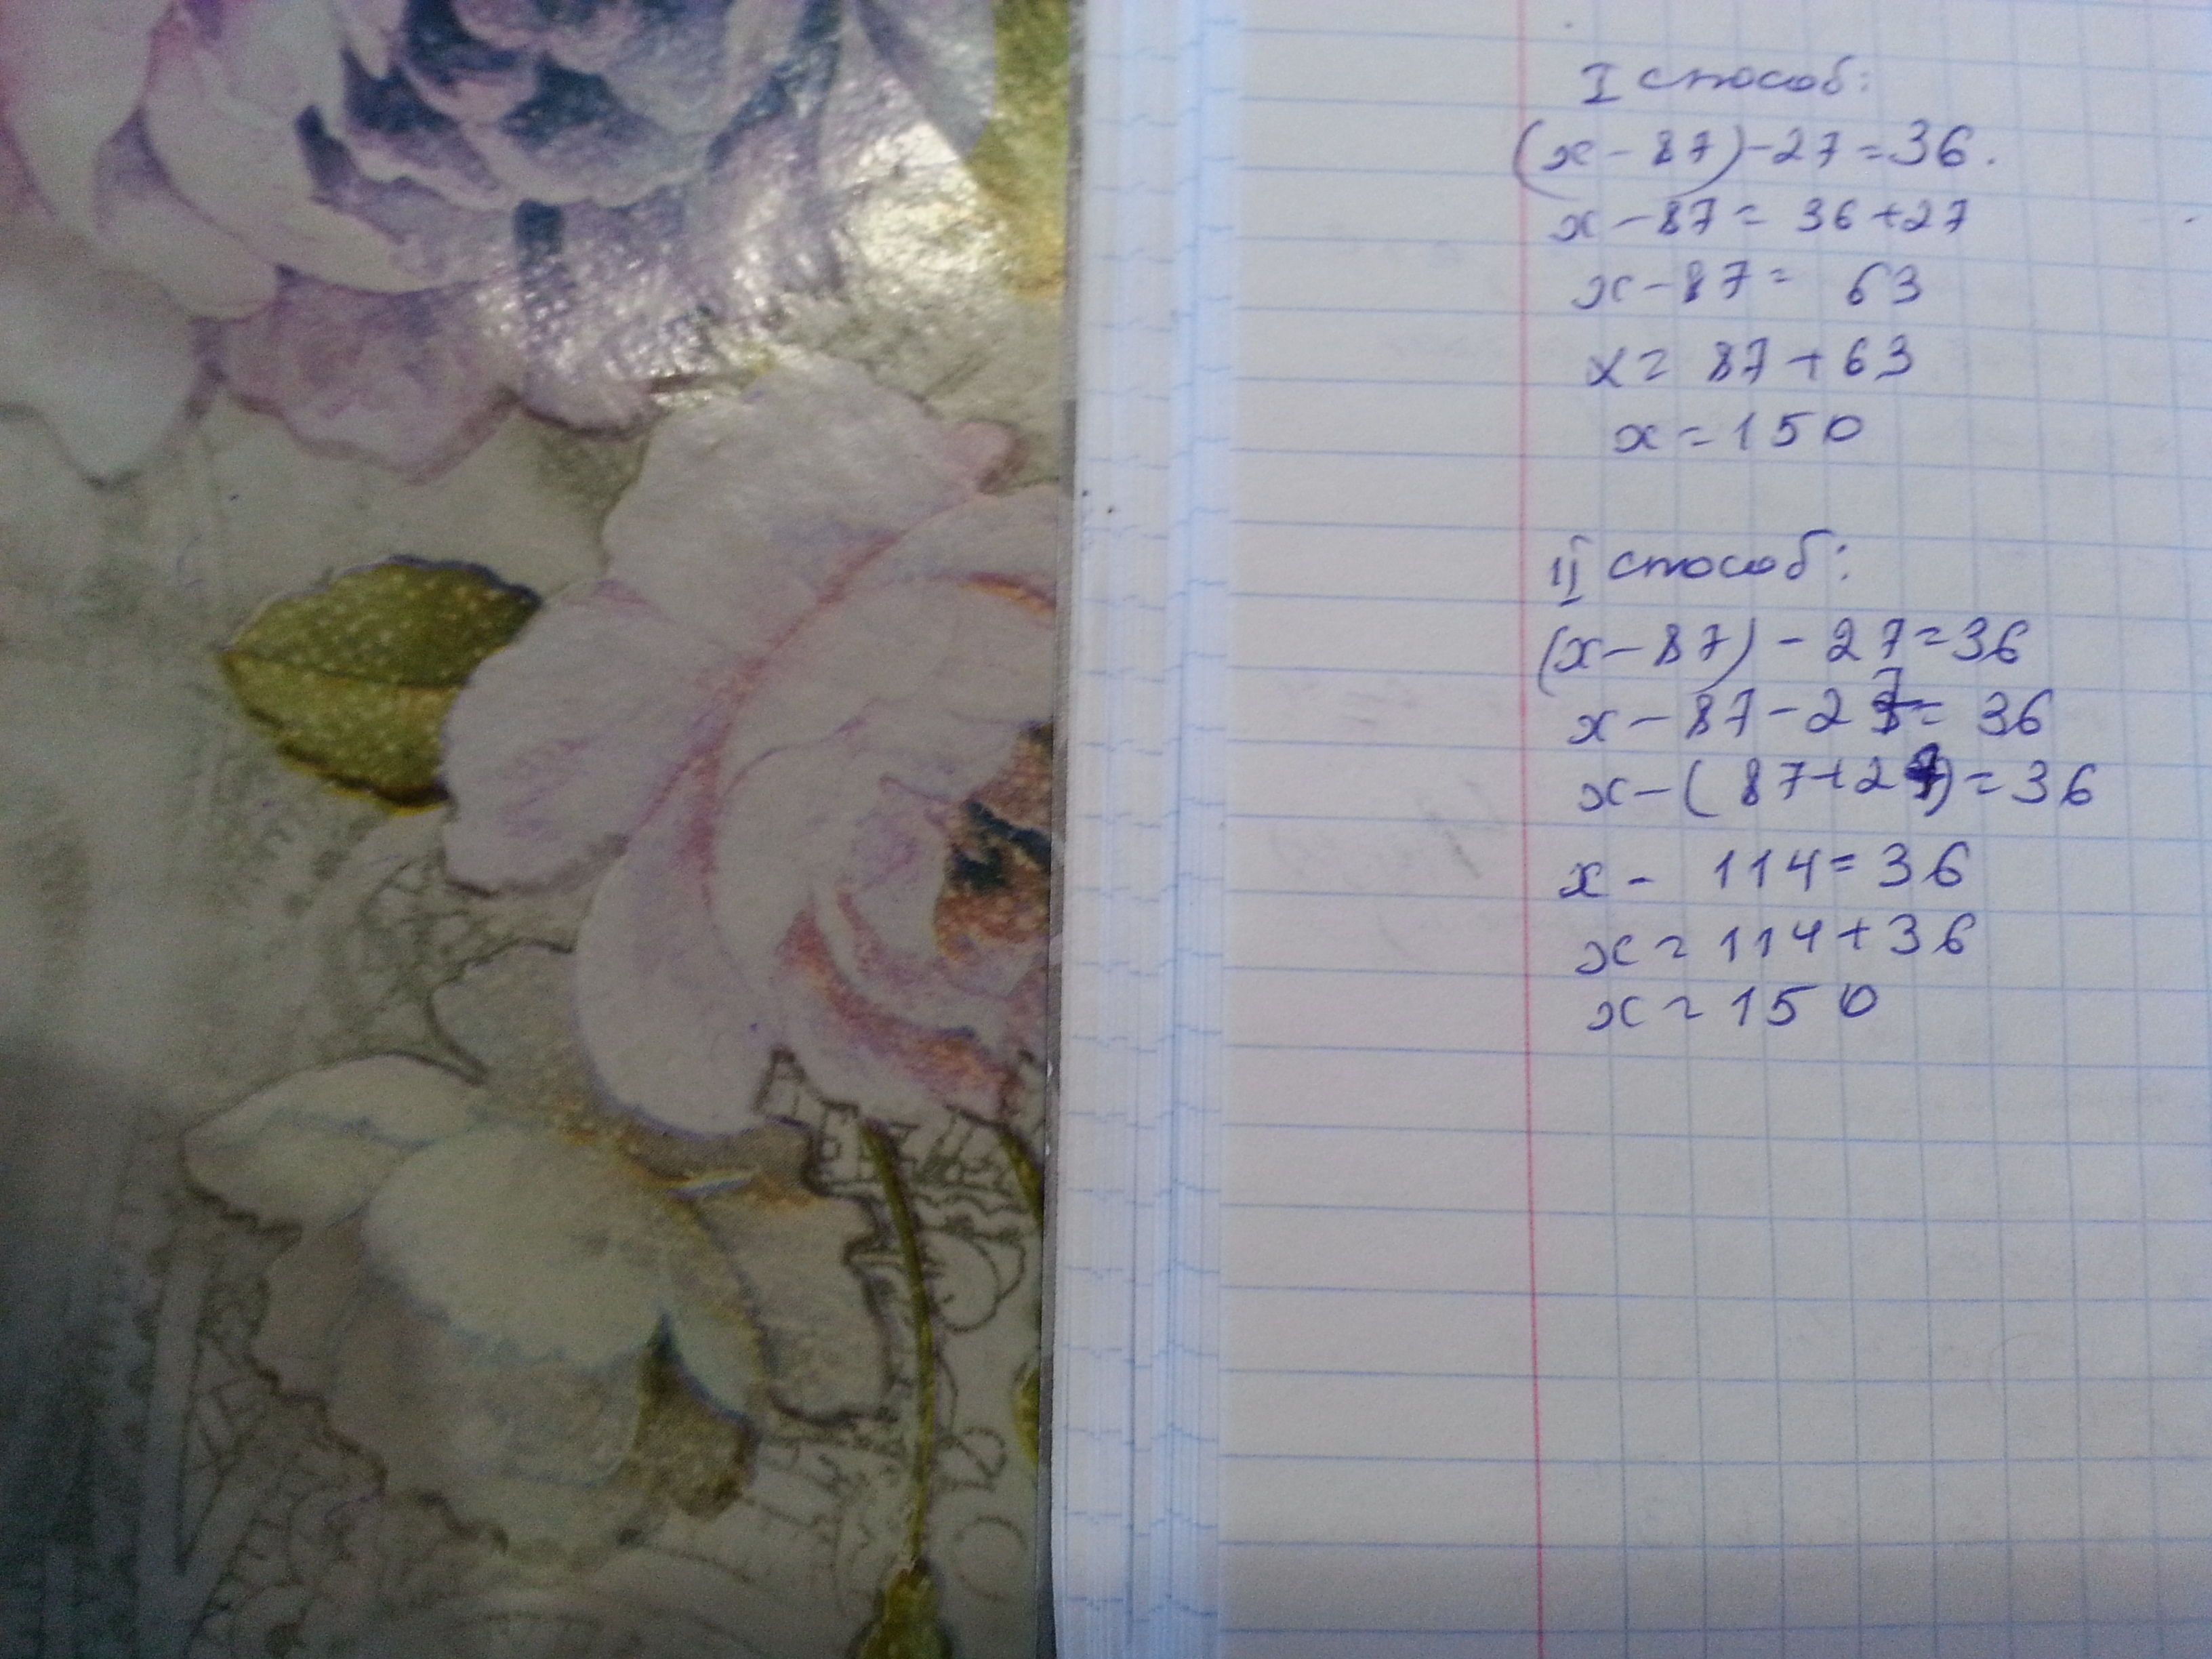 I способ:
(x - 87) - 27 = 36.
x - 87 = 36 + 27
x - 87 = 63
x = 87 + 63
x = 150
II способ:
(x - 87) - 27 = 36
x - 87 - 27 = 36
x - (87 + 27) = 36
x - 114 = 36
x = 114 + 36
x = 150